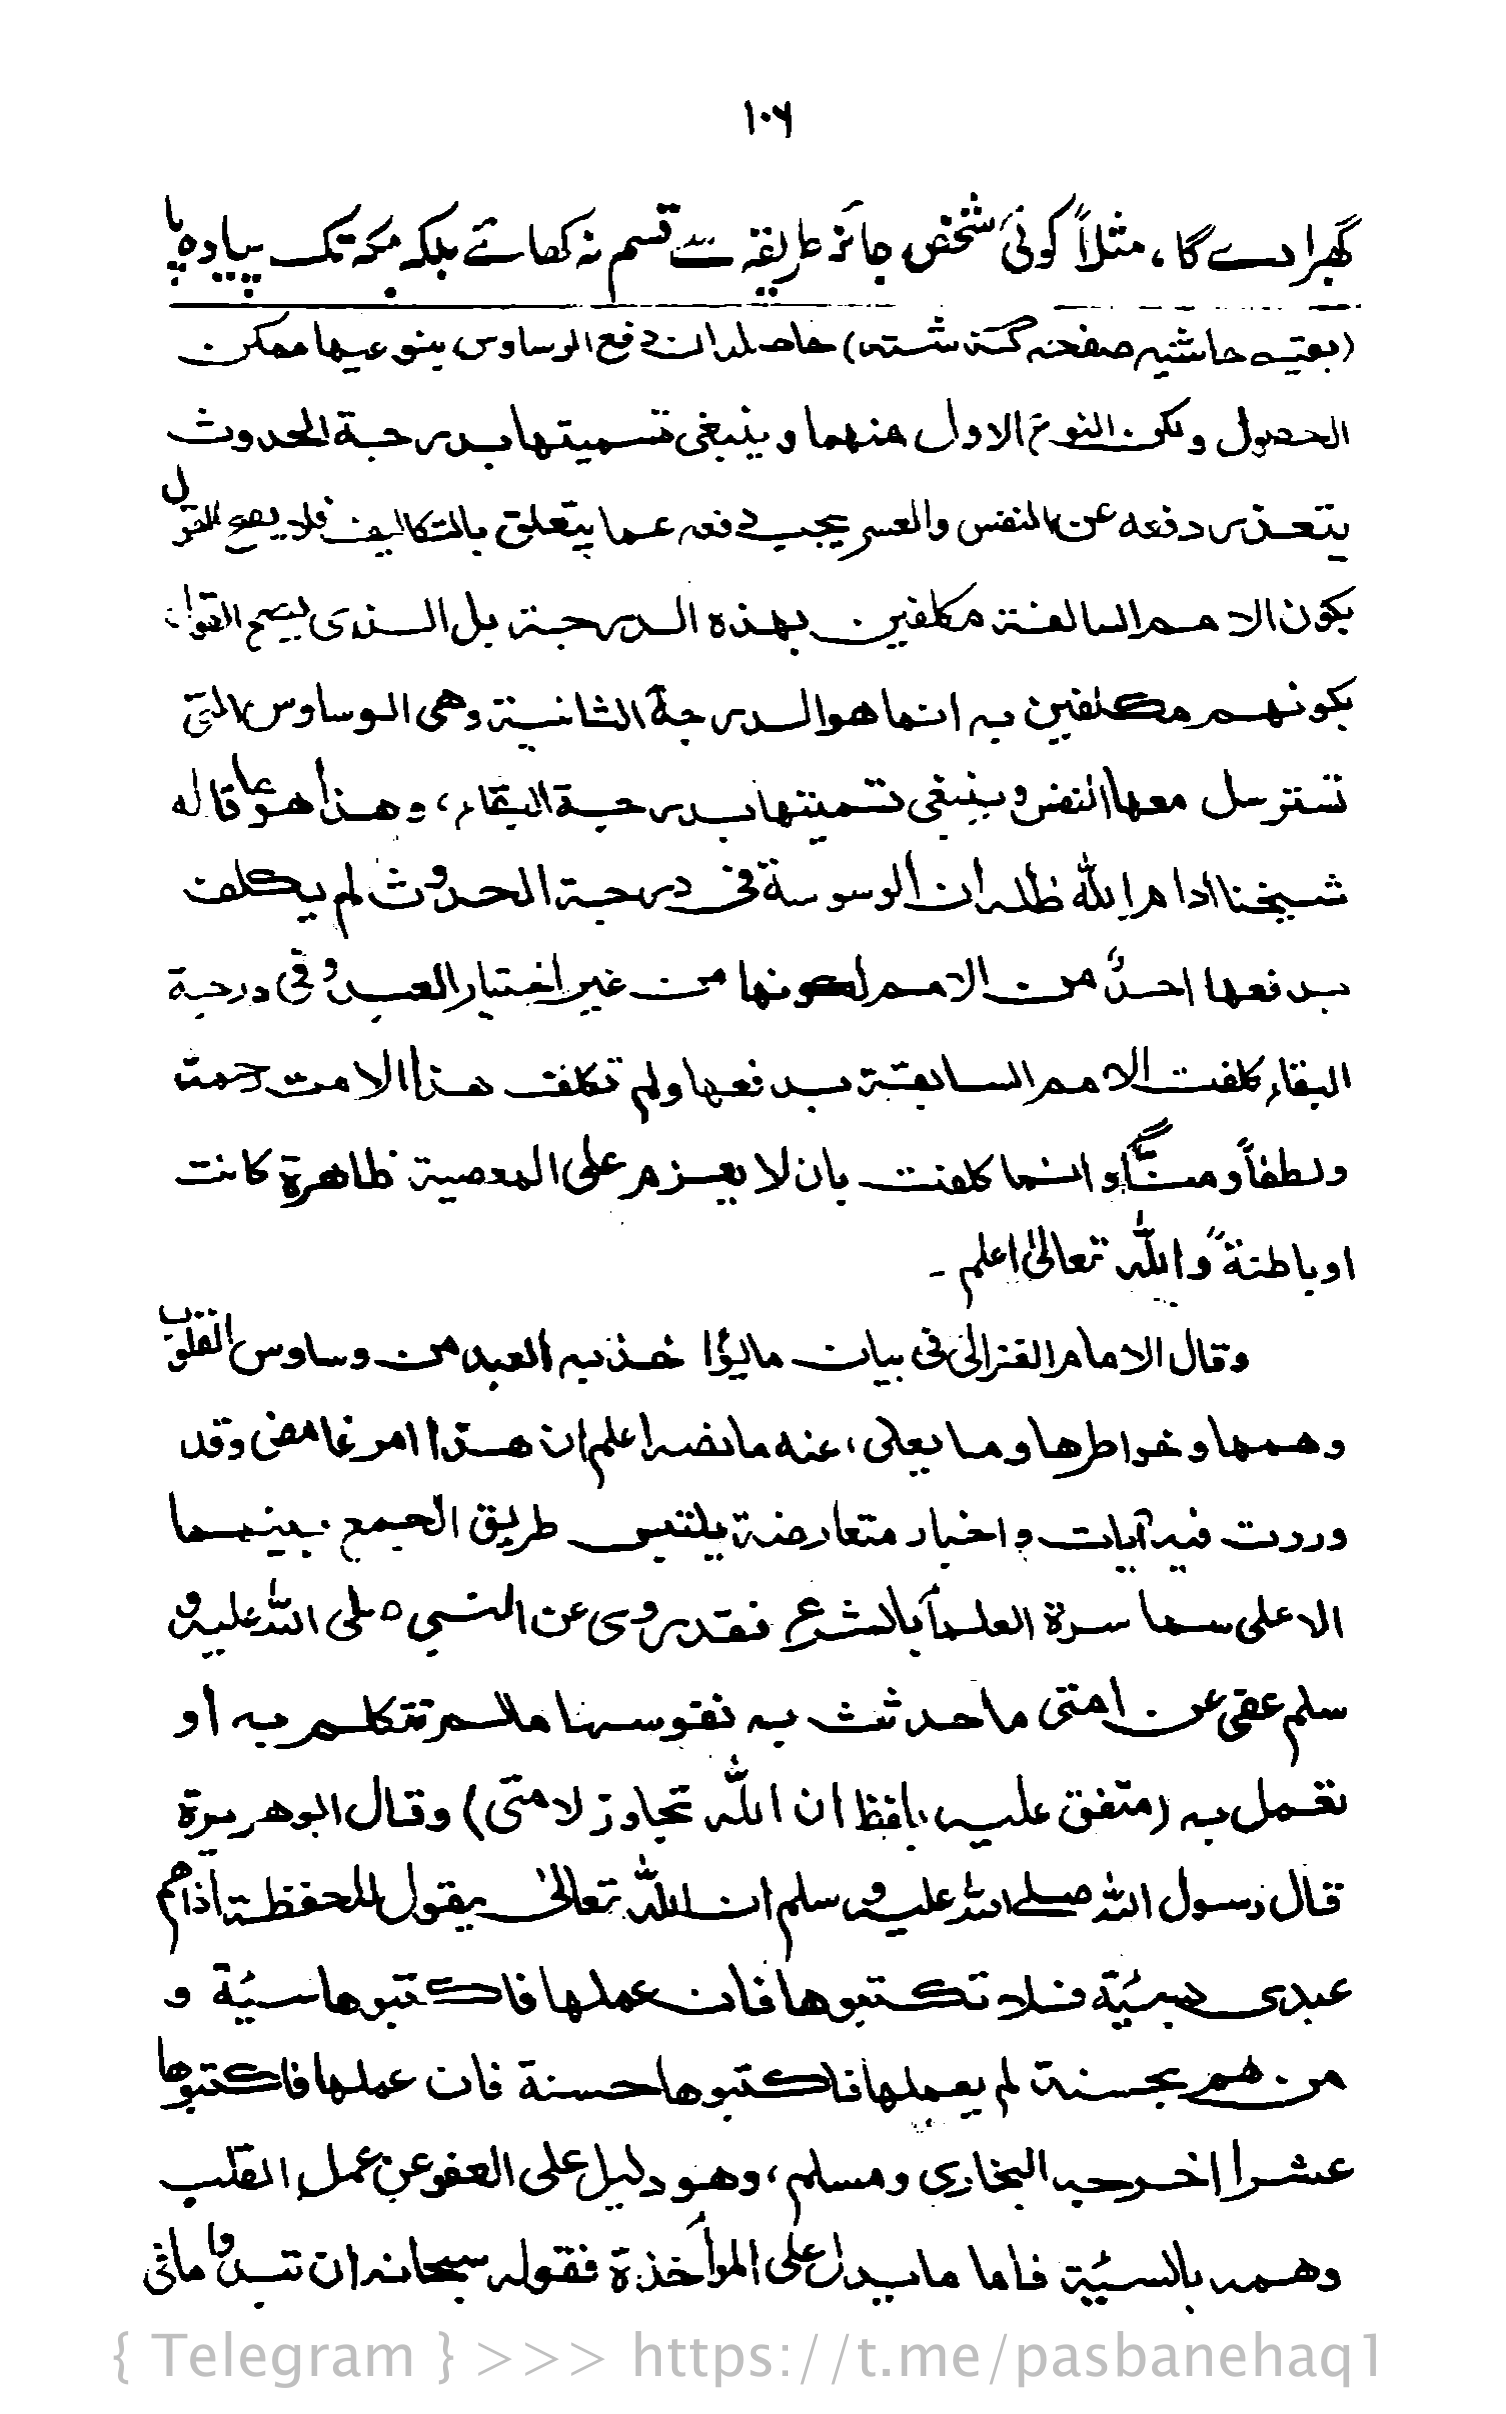 ۱۰۶
گھبرا دے گا، مثلاً کوئی شخص جائز طریقہ سے قسم نہ کھائے بلکہ مکہ تک پیادہ پا
(بقیہ حاشیہ صفحہ گذشتہ) حاصلہ ان دفع الوساوس بنوعیها ممکن
الحصول ولکن النوع الاول منهما و ینبغی تسمیتها بدرجة الحدوث
یتعذر دفعه عن النفس والعسر یجب دفعه عما یتعلق بالتکالیف فلا یصح القول
بکون الامم السالفة مکلفین بهذه الدرجة بل الذی یصح القول
بکونهم مکلفین به انما هو الدرجة الثانیة وهی الوساوس التی
تسترسل معها النفس وینبغی تسمیتها بدرجة البقاء، وهذا هو ما قاله
شیخنا ادام الله ظله ان الوسوسة فی درجة الحدوث لم یکلف
بدفعها احدٌ من الامم لکونها من غیر اختیار العبد وفی درجة
البقاء کلفت الامم السابقة بدفعها ولم تکلف هذا الامت رحمة
ولطفاً ومنّاً وانما کلفت بان لا یعزم علی المعصیة ظاهرة کانت
او باطنة والله تعالیٰ اعلم ۔
وقال الامام الغزالی فی بیان مایؤا خذ به العبد من وساوس القلوب
وهمها وخواطرها وما یعفی، عنه مانصه اعلم ان هذا امر غامض وقد
وردت فیه آیات و اخبار متعارضة یلتبس طریق الجمع بینهما
الا علی سماسرة العلمآ بالشرع فقد روی عن النبی صلی الله علیه و
سلم عفی عن امتی ما حدثت به نفوسها مالم تتکلم به او
تعمل به (متفق علیه بلفظ ان الله تجاوز لامتی) وقال ابوهریرة
قال رسول الله صلے الله علیه و سلم ان الله تعالیٰ یقول للحفظة اذا هم
عبدی بسیئة فلا تکتبوها فان عملها فاکتبوها سیئة و
من هم بحسنة لم یعملها فاکتبوها حسنة فان عملها فاکتبوها
عشرا اخرجه البخاری ومسلم، وهو دلیل علی العفو عن عمل القلب
وهمه بالسیئة فاما مایدل علی المؤاخذة فقوله سبحانه ان تبدوا مافی
{ Telegram } >>> https://t.me/pasbanehaq1